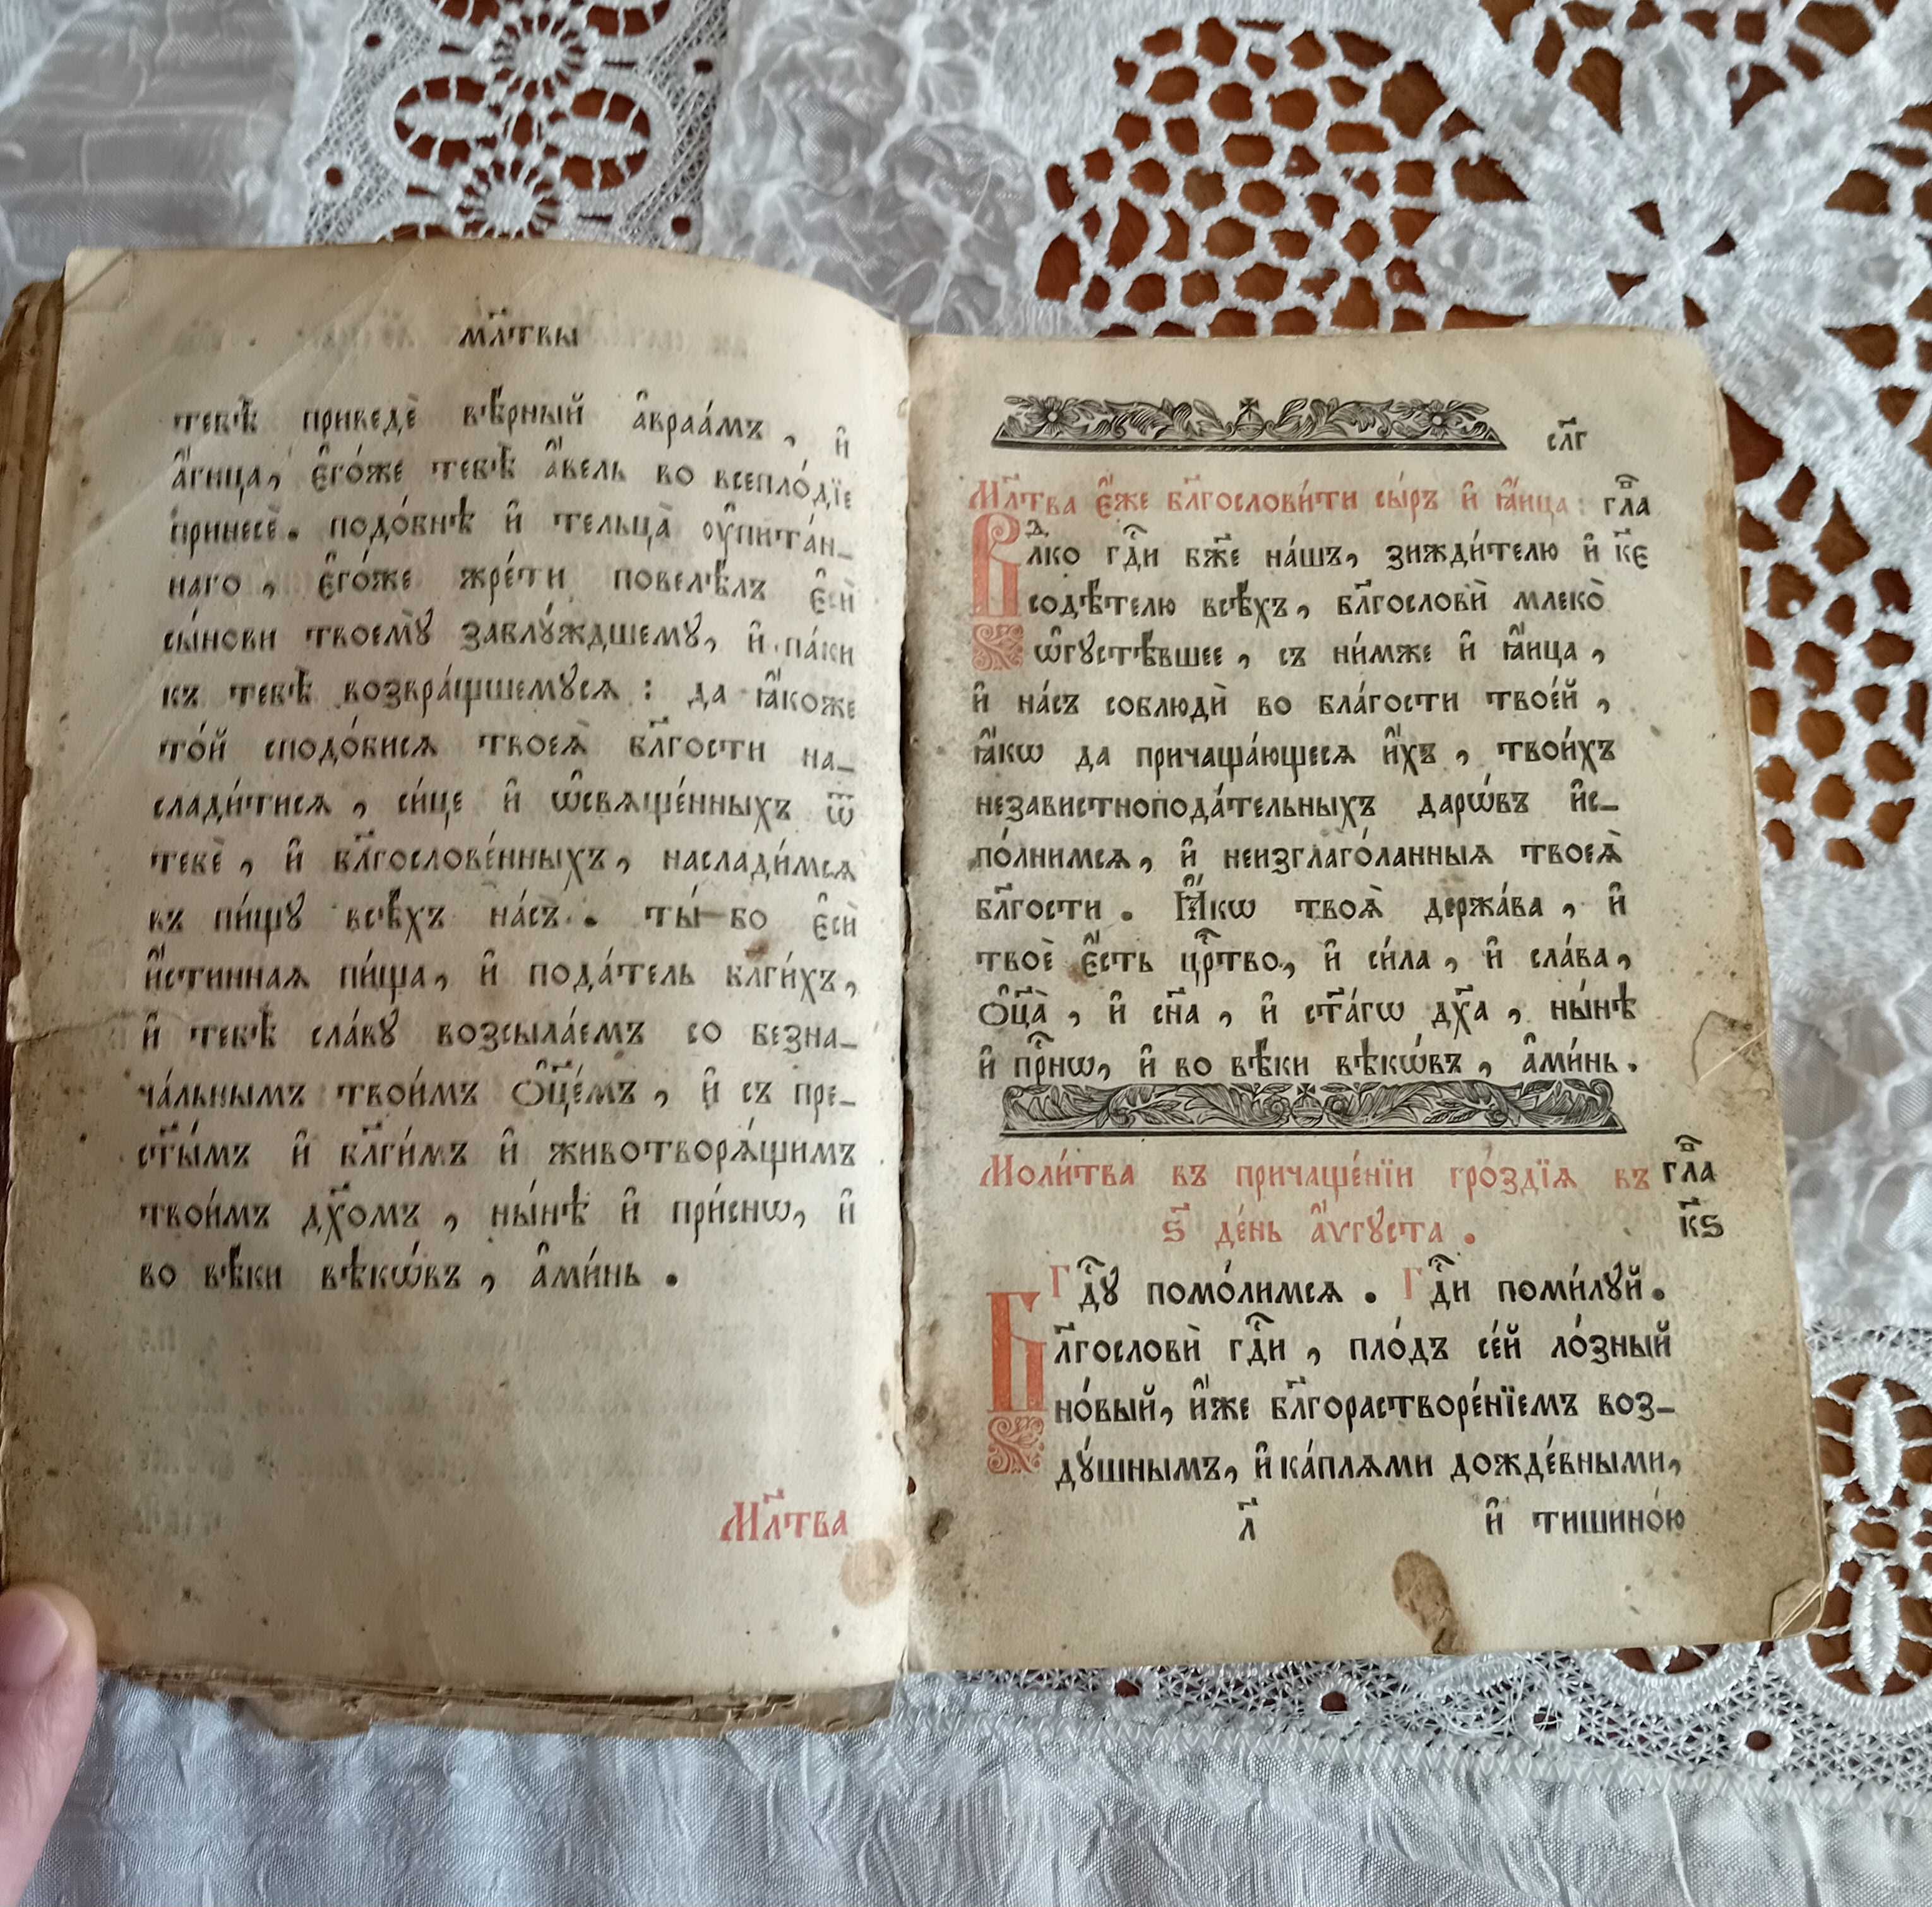 мл҃твы
тебѣ̀ приведѐ вѣ́рный а҆враа́мъ , и҆
а҆́гнца , є҆го́же тебѣ̀ а҆́вель во всепло́дїе
принесѐ . подо́бнѣ и҆ тельца̀ ѹ҆пита́н_
наго , є҆го́же жре́ти повелѣ́лъ є҆сѝ
сы́нови твоемꙋ̀ заблꙋ́ждшемꙋ , и҆ па́ки
къ тебѣ̀ возвра́щшемꙋсѧ : да ꙗ҆́коже
то́й сподо́бисѧ твоеѧ̀ бл҃гости на_
слади́тисѧ , си́це и҆ ѡ҆свѧще́нныхъ ѿ
тебѐ , и҆ бл҃гослове́нныхъ , наслади́мсѧ
въ пи́щꙋ всѣ́хъ на́съ . ты́ бо є҆сѝ
и҆́стиннаѧ пи́ща , и҆ пода́тель бл҃ги́хъ ,
и҆ тебѣ̀ сла́вꙋ возсыла́емъ со безна_
ча́льнымъ твои́мъ ѻ҆ц҃е́мъ , и҆ съ пре_
ст҃ы́мъ и҆ бл҃ги́мъ и҆ животворѧ́щимъ
твои́мъ дх҃омъ , ны́нѣ и҆ при́снѡ , и҆
во вѣ́ки вѣкѡ́въ , а҆ми́нь .
Мл҃тва
сл҃г
Мл҃тва є҆́же бл҃гослови́ти сы́ръ и҆ ꙗ҆́ица : глⷡ҇а
Влⷣко гдⷭ҇и бж҃е на́шъ , зижди́телю и҆ к҃є
содѣ́телю всѣ́хъ , бл҃гословѝ млеко̀
ѡ҆гꙋстѣ́вшее , съ ни́мже и҆ ꙗ҆́ица ,
и҆ на́съ соблюдѝ во бла́гости твое́й ,
ꙗ҆́кѡ да причаща́ющесѧ и҆́хъ , твои́хъ
независтноподательныхъ дарѡ́въ и҆с_
по́лнимсѧ , и҆ неизглаго́ланныѧ твоеѧ̀
бл҃гости . Ꙗ҆́кѡ твоѧ̀ держа́ва , и҆
твоѐ є҆́сть црⷭ҇тво , и҆ си́ла , и҆ сла́ва ,
ѻ҆ц҃а̀ , и҆ сн҃а , и҆ ст҃а́гѡ дх҃а , ны́нѣ
и҆ прⷭ҇нѡ , и҆ во вѣ́ки вѣкѡ́въ , а҆ми́нь .
Моли́тва въ причаще́нїи гро́здїѧ въ глⷡ҇а
ѕ҃ де́нь а҆́ѵгꙋста . к҃ѕ
Гдⷭ҇ꙋ помо́лимсѧ . Гдⷭ҇и поми́лꙋй .
Бл҃гословѝ гдⷭ҇и , пло́дъ се́й ло́зный
но́вый , и҆́же бл҃горастворе́нїемъ воз_
дꙋ́шнымъ , и҆ ка́плѧми дожде́вными ,
л҃ и҆ тишино́ю